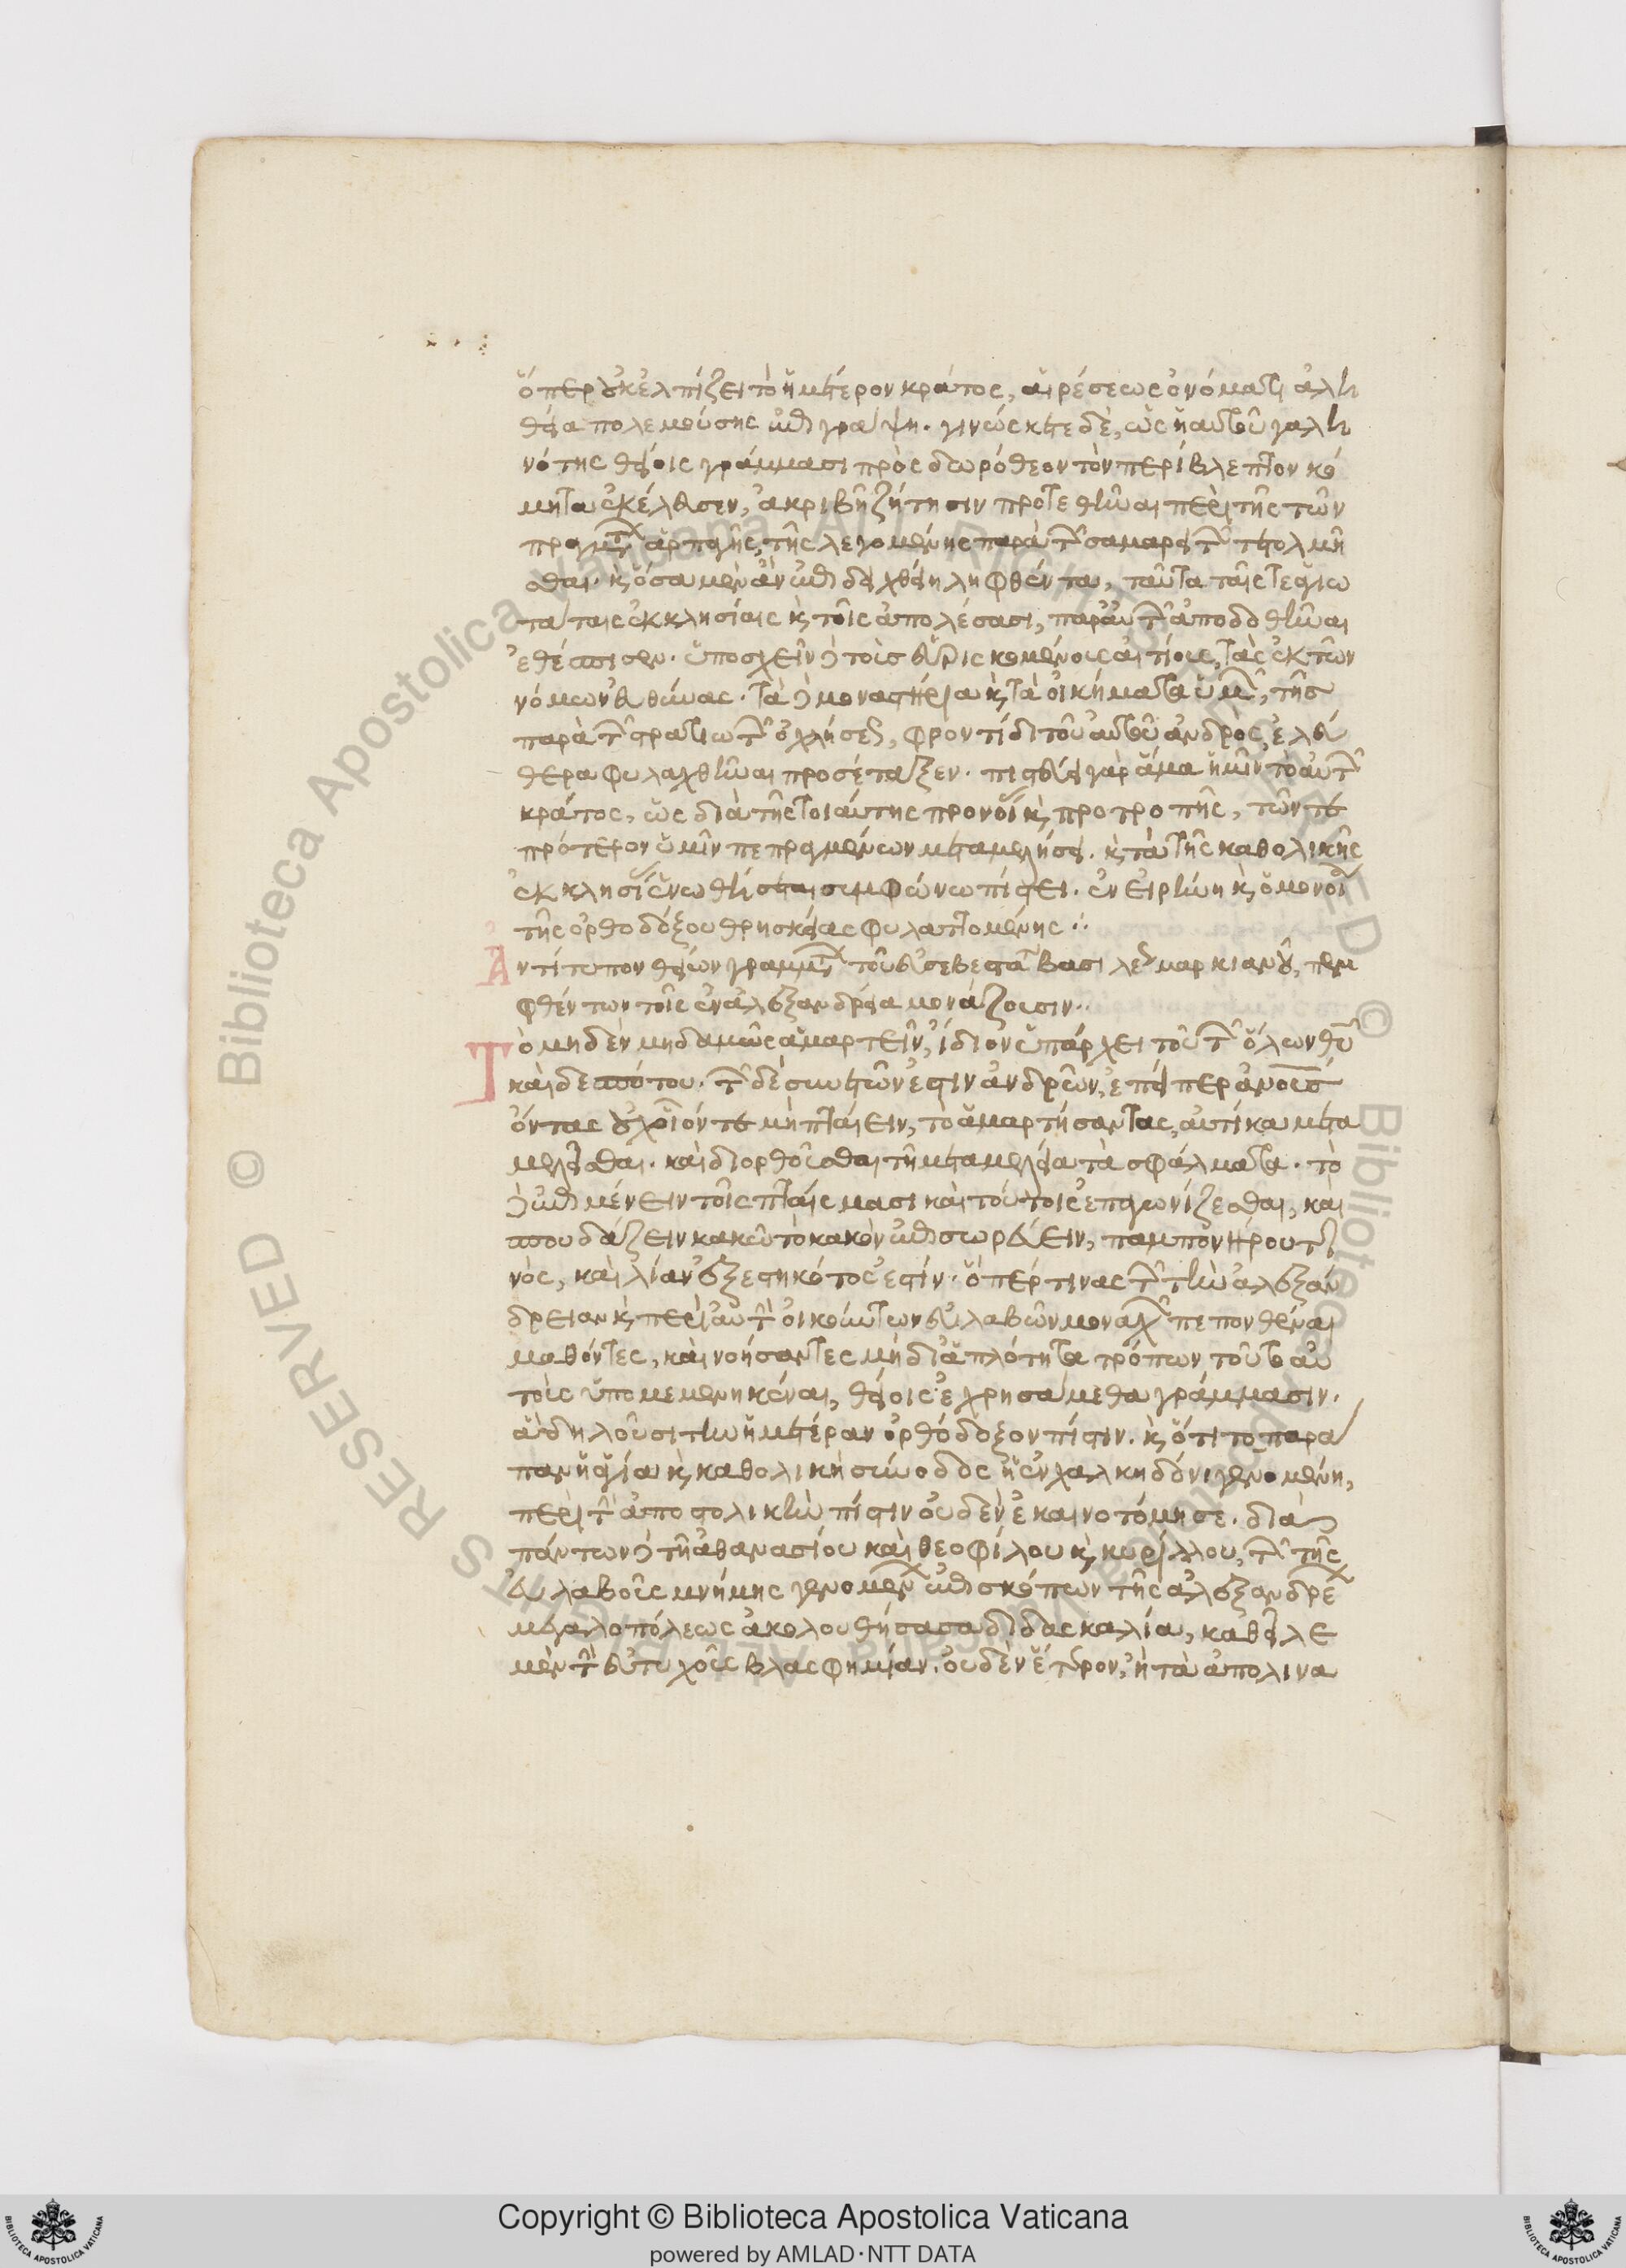 ὅπερ οὐκ ἐλπίζει τὸ ἡμέτερον κράτος, αἱρέσεως ὀνόματι ἀλη
θεία πολεμούσης ἐπιγραψη. γινώσκετε δὲ, ὡς ἡ αὐτοῦ γαλη
νότης θείοις γράμμασι πρὸς δωρόθεον τὸν περίβλεπτον κό
μητα ἐκέλευσεν, ἀκριβῆ ζήτησιν προτεθῆναι περὶ τῆς τῶν
πραγμάτων ἁρπαγῆς, τῆς λεγομένης παρὰ τῶν σαμαρειτῶν τετολμῆ
σθαι. καὶ ὅσα μὲν ἂν ἐπιδειχθείη ληφθέντα, ταῦτα ταῖς τε ἁγιω
τάταις ἐκκλησίαις καὶ τοῖς ἀπολέσασι, παρ' αὐτῶν ἀποδοθῆναι
ἐθέσπισεν. ὑποσχεῖν δὲ τοὺς εὑρισκομένους αἰτίους, τὰς ἐκ τῶν
νόμων εὐθύνας. τὰ δὲ μοναστήρια καὶ τὰ οἰκήματα ὑμῶν, τῆς
παρὰ τῶν στρατιωτῶν ὀχλήσεως, φροντίδι τοῦ αὐτοῦ ἀνδρὸς, ἐλεύ
θερα φυλαχθῆναι προσέταξεν. πιστεύει γὰρ ἅμα ἡμῖν τὸ αὐτῶν
κράτος, ὡς διὰ τῆς τοιαύτης προνοίας καὶ προτροπῆς, τῶν τε
πρότερον ὑμῖν πεπραγμένων μεταμελήσει. καὶ τὰ τῆς καθολικῆς
ἐκκλησίας ἑνωθήσεται συμφώνω πίστει. ἐν εἰρήνη καὶ ὁμονοία
τῆς ὀρθοδόξου θρησκείας φυλαττομένης ⁘
Ἀντίτυπον θείων γραμμάτων τοῦ εὐσεβεστάτου βασιλέως μαρκιανοῦ, πεμ
φθέντων τοῖς ἐν ἀλεξανδρεία μονάζουσιν.
Τὸ μηδὲν μηδαμῶς ἁμαρτεῖν, ἴδιον ὑπάρχει τοῦ τῶν ὅλων θεοῦ
καὶ δεσπότου. τῶν δὲ συνετῶν ἐστιν ἀνδρῶν, ἐπείπερ ἀνθρώπους
ὄντας οὐχ οἷόν τε μὴ πταίειν, τὸ ἁμαρτήσαντας, αὐτίκα μετα
μελεῖσθαι. καὶ διορθοῦσθαι τῆ μεταμελεία τὰ σφάλματα. τὸ
δὲ ἐπιμένειν τοῖς πταίσμασι καὶ τούτοις ἐπαγωνίζεσθαι, καὶ
σπουδάζειν κακῶ τὸ κακὸν ἐπισωρεύειν, παμπονήρου τι
νὸς, καὶ λίαν ἐξεστηκότος ἐστίν. ὅπέρ τινας τῶν τὴν ἀλεξάν
δρειαν καὶ περὶ αὐτὴν οἰκούντων εὐλαβῶν μοναχῶν πεπονθέναι
μαθόντες, καὶ νοήσαντες μὴ δι' ἁπλότητα τρόπων τοῦτο αὐ
τοὺς ὑπομεμενηκέναι, θείοις ἐχρησάμεθα γράμμασιν.
ἃ δηλοῦσι τὴν ἡμετέραν ὀρθόδοξον πίστιν. καὶ ὅτι τὸ παρά
παν ἡ ἁγία καὶ καθολικὴ σύνοδος ἡ ἐν χαλκηδόνι γενομένη,
περὶ τὴν ἀποστολικὴν πίστιν οὐδὲν ἐκαινοτόμησε. διὰ
πάντων δὲ τῆ ἀθανασίου καὶ θεοφίλου καὶ κυρίλλου, τῶν τῆς
εὐλαβοῦς μνήμης γενομένων ἐπισκόπων τῆς ἀλεξανδρέων
μεγαλοπόλεως ἀκολουθήσασα διδασκαλία, καθεῖλε
μὲν τὴν εὐτυχοῦς βλασφημίαν. οὐδὲν ἕτερον, ἢ τὰ ἀπολινα
Copyright © Biblioteca Apostolica Vaticana
powered by AMLAD·NTT DATA